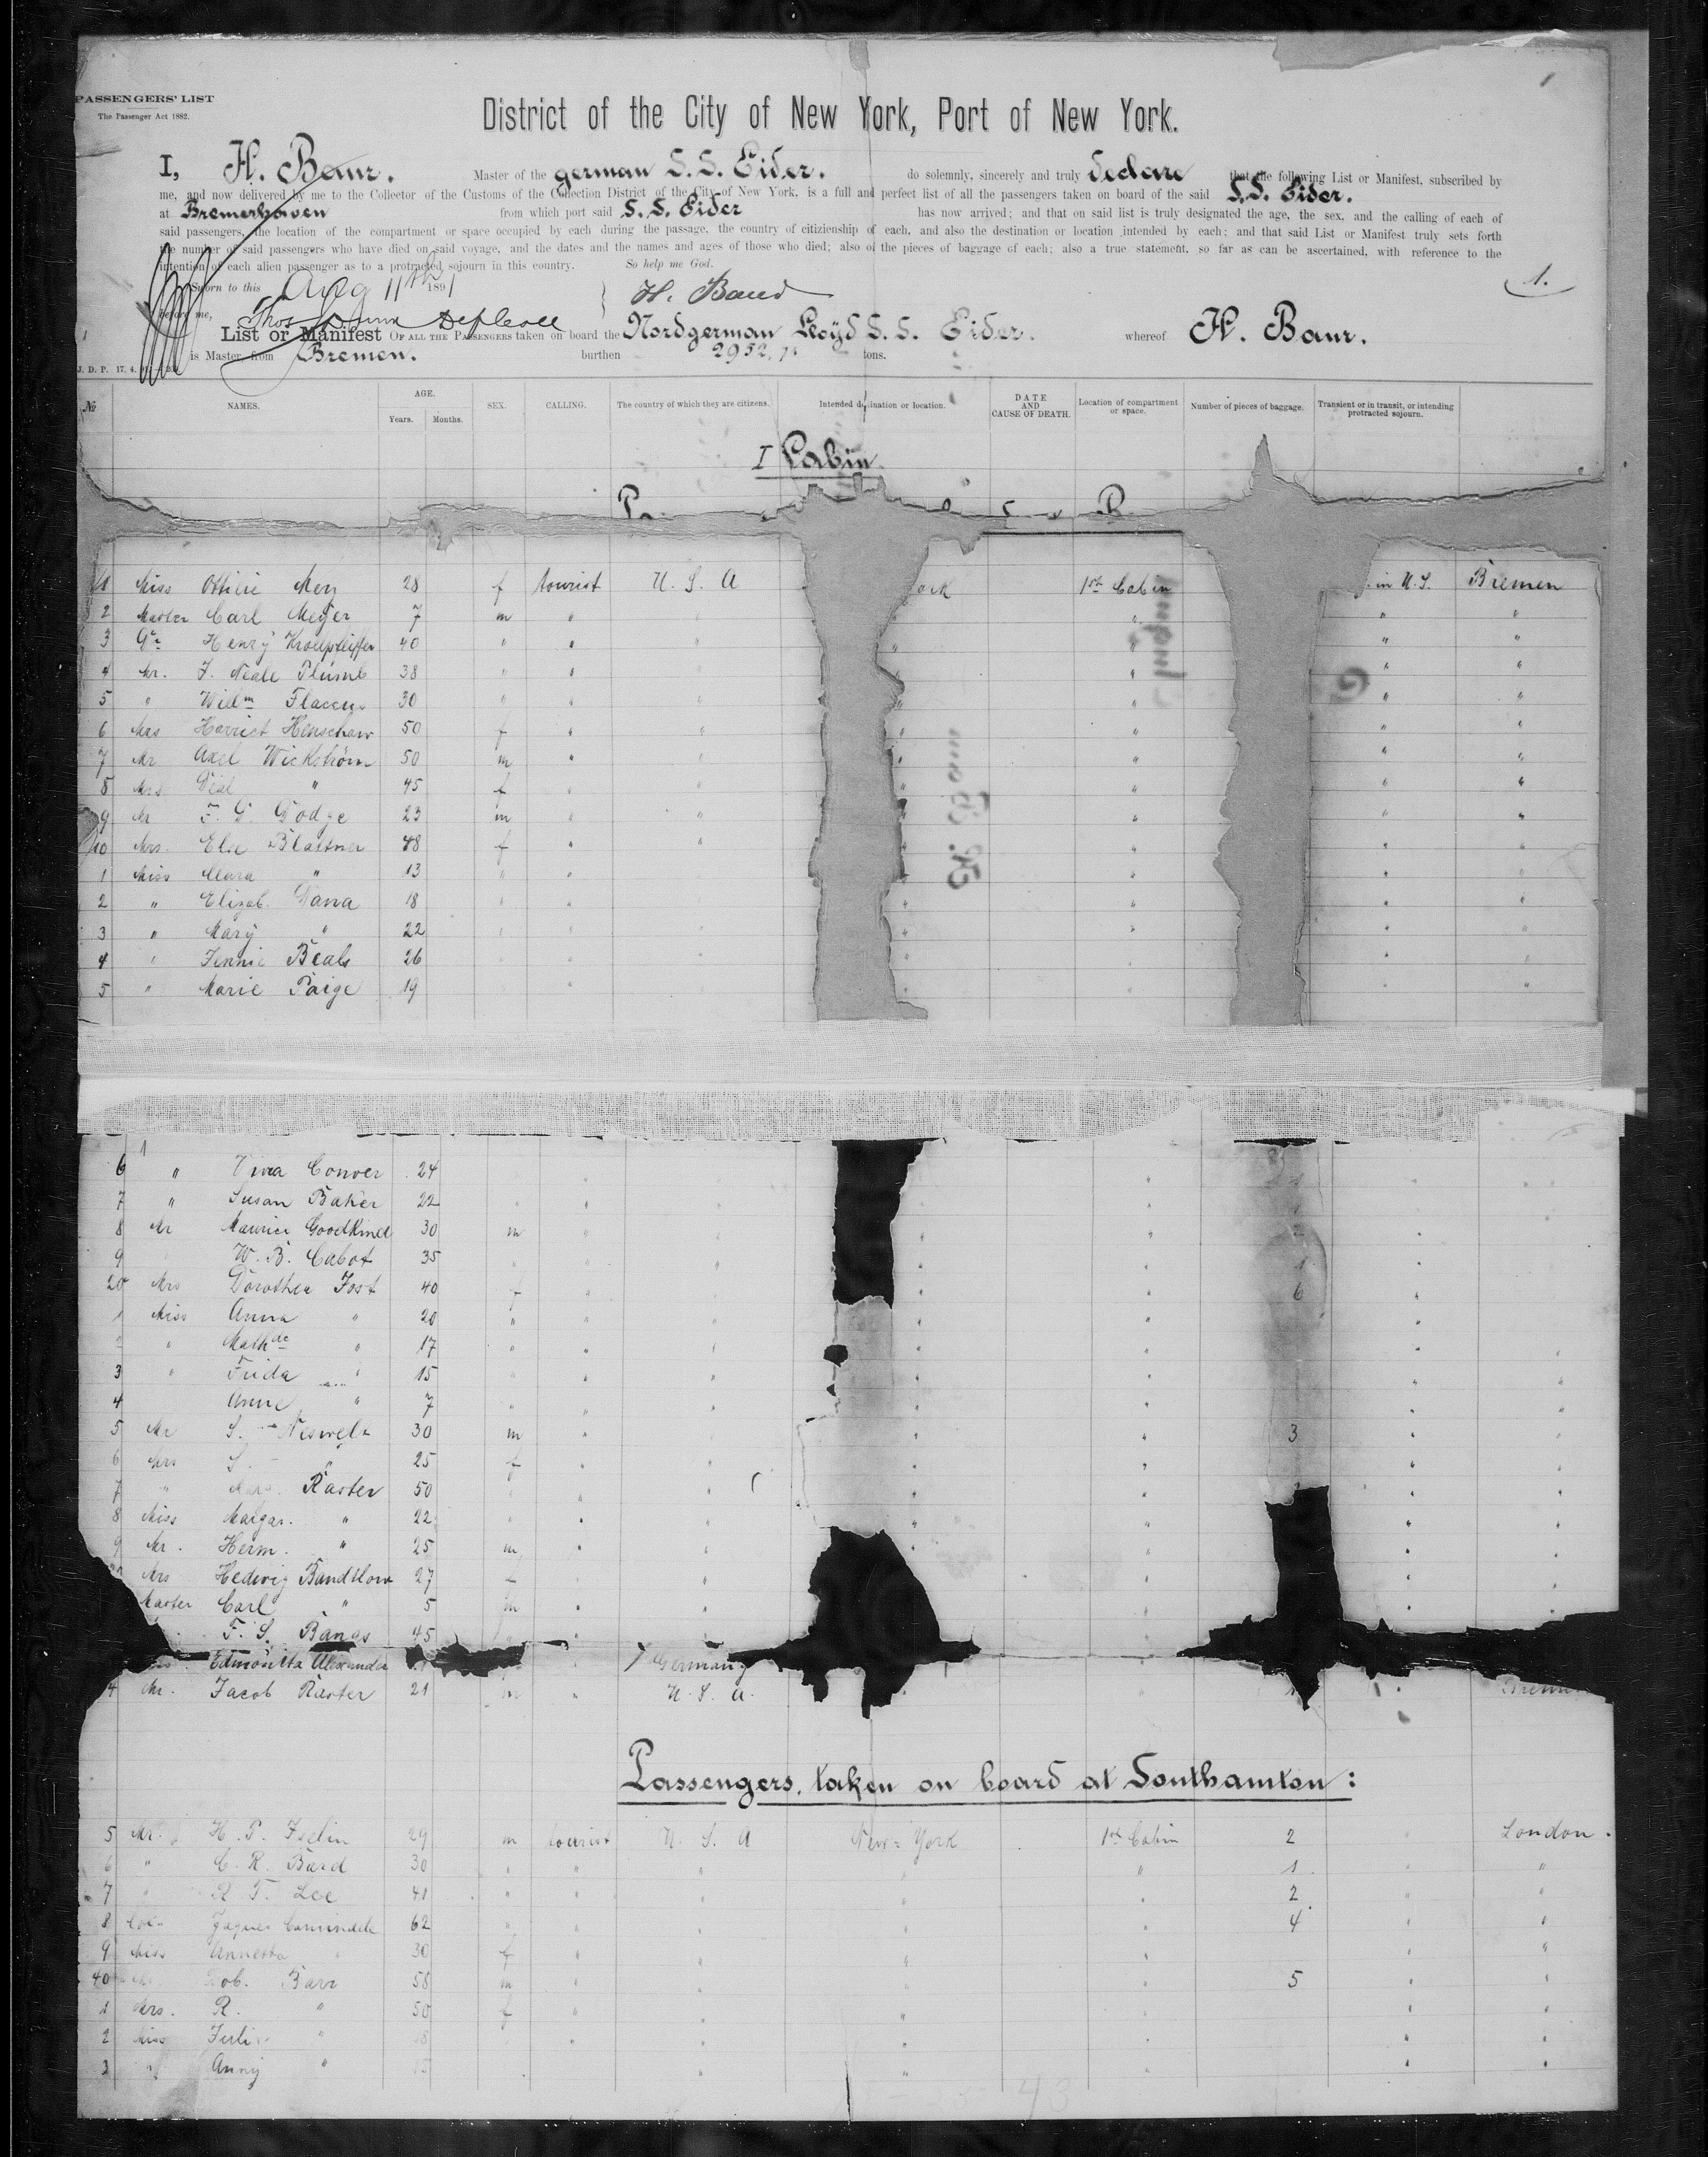 PASSENGERS' LIST
The Passenger Act 1882.
1
District of the City of New York, Port of New York.
I, H. Baur. Master of the german S. S. Eider. do solemnly, sincerely and truly declare that the following List or Manifest, subscribed by
me, and now delivered by me to the Collector of the Customs of the Collection District of the City of New York, is a full and perfect list of all the passengers taken on board of the said S.S. Eider.
at Bremerhaven from which port said S. S. Eider has now arrived; and that on said list is truly designated the age, the sex, and the calling of each of
said passengers, the location of the compartment or space occupied by each during the passage, the country of citizienship of each, and also the destination or location intended by each; and that said List or Manifest truly sets forth
the number of said passengers who have died on said voyage, and the dates and the names and ages of those who died; also of the pieces of baggage of each; also a true statement, so far as can be ascertained, with reference to the
intention of each alien passenger as to a protracted sojourn in this country. So help me God.
Sworn to this Aug 11th 1891 H. Baur 1.
before me,
List or Manifest OF ALL THE PASSENGERS taken on board the Nordgerman Lloyd S. S. Eider. whereof H. Baur.
is Master, from Bremen. burthen 2952, tons.
J. D. P. 17. 4.
№ NAMES. AGE. Years. Months. SEX. CALLING. The country of which they are citizens. Intended destination or location. DATE AND CAUSE OF DEATH. Location of compartment or space. Number of pieces of baggage. Transient or in transit, or intending protracted sojourn.
I Cabin
1 Miss Ottilie Mey 28 f tourist U. S. A ork 1st Cabin in U.S. Bremen
2 Master Carl Meyer 7 m " " "
3 Dr Henry 40 " " " " " "
4 Mr. F. Neale Plumb 38 " " " " "
5 " Willm Flaccus 30 " " " " " " "
6 Mrs Harriet Henschaw 50 f " " " " " "
7 Mr Axel Wickström 50 m " " " " " "
8 Mrs " 45 f " " " " " "
9 Mr F. G. Dodge 23 m " " " " " "
10 Mrs. Else Blattner 48 f " " " " " "
1 Miss Clara " 13 " " " " " "
2 " Elizab. Dana 18 " " " " " " "
3 " Mary " 22 " " " " " " "
4 " Jennie Beals 26 " " " " " "
5 " Marie Paige 19 " " " " " "
6 " Conver 24 " " " "
7 " Susan Baker 22 " " " "
8 Mr Maurice Goodkind 30 m " " " " 2 "
9 W. B. Cabot 35 " " " " " 1
20 Mrs Dorothea Jost 40 f " " " " 6 "
1 Miss Anna " 20 " " " " " "
2 " Mathde " 17 " " " " " " "
3 " Frida " 15 " " " " " " "
4 Anne " 7 " " " " " " "
5 Mr S. 30 m " " " " 3 " "
6 Mrs S. " 25 f " " " " " "
7 " Raster 50 " " " " " " "
8 Miss Margar. " 22 " " " " " " "
9 Mr. Herm. " 25 m " " " " " "
Mrs Hedwig Bandslow 27 " " " " "
Master Carl " 5 m " " " " "
F. S. Bangs 45
Alexander Germany
4 Mr. Jacob Raster 21 m " U. S. A. Bremen
Passengers, taken on board at Southamton:
5 Mr. H. P. Iselin 29 m tourist U. S. A New-York 1st Cabin 2 " London.
6 " C. R. Bard 30 " " " " " 1 "
7 " R. T. Lee 41 " " " " " 2 " "
8 Jaques 62 " " " " " 4 " "
9 Miss Annetta " 30 f " " " " " "
40 Rob. Barr 58 m " " " " 5 " "
1 Mrs. R. " 50 f " " " " " "
2 Miss " " " " " " "
3 " Anny " " " " " "
43